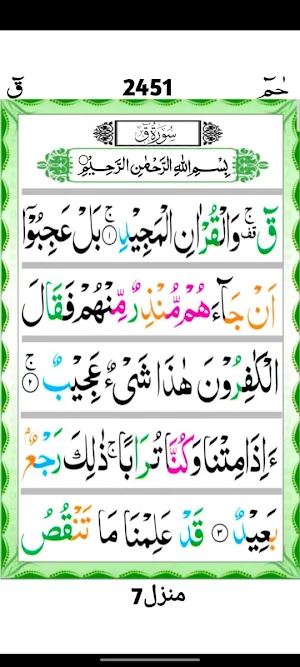 قٓ 2451 حٰمٓ
سُوْرَةُ قٓ
بِسْمِ اللهِ الرَّحْمٰنِ الرَّحِيْمِ
قٓ ۚ قف وَالْقُرْاٰنِ الْمَجِيْدِ ۚ ١ بَلْ عَجِبُوْٓا
اَنْ جَآءَهُمْ مُّنْذِرٌ مِّنْهُمْ فَقَالَ
الْكٰفِرُوْنَ هٰذَا شَیْءٌ عَجِيْبٌ ۚ ٢
ءَاِذَا مِتْنَا وَكُنَّا تُرَابًا ۚ ذٰلِكَ رَجْعٌۢ
بَعِيْدٌ ٣ قَدْ عَلِمْنَا مَا تَنْقُصُ
منزل 7